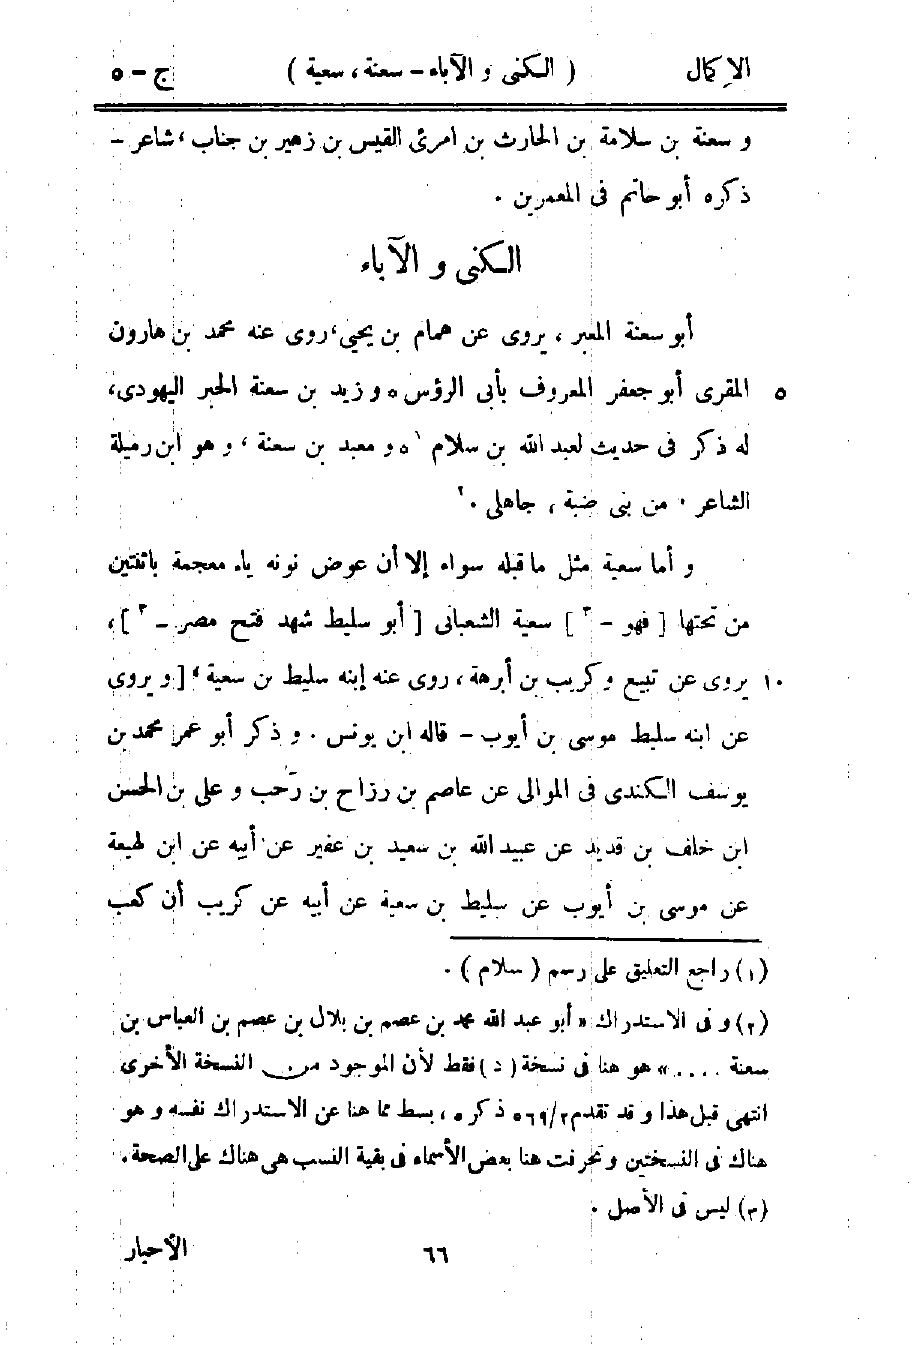 الإكمال ( الكنى و الآباء – سعنة ، سعية ) ج – ٥
و سعنة بن سلامة بن الحارث بن امرئ القيس بن زهير بن جناب ، شاعر –
ذكره أبو حاتم فى المعمرين .
الكنى و الآباء
أبو سعنة المعبر ، يروى عن همام بن يحيى ، روى عنه محمد بن هارون
٥ المقرى أبو جعفر المعروف بأبى الرؤس ه و زيد بن سعنة الحبر اليهودى ،
له ذكر فى حديث لعبد الله بن سلام ١ ه و معبد بن سعنة ، و هو ابن رميلة
الشاعر . من بنى ضبة ، جاهلى . ٢
و أما سعية مثل ما قبله سواء إلا أن عوض نونه ياء معجمة باثنتين
من تحتها [ فهو – ٣ ] سعية الشعبانى [ أبو سليط شهد فتح مصر – ٣ ] ،
١٠ يروى عن تبيع و كريب بن أبرهة ، روى عنه إبنه سليط بن سعية ، [ و يروى
عن ابنه سليط موسى بن أيوب – قاله ابن يونس . و ذكر أبو عمر محمد بن
يوسف الكندى فى الموالى عن عاصم بن رزاح بن رَحب و على بن الحسن
ابن خلف بن قديد عن عبيد الله بن سعيد بن عفير عن أبيه عن ابن لهيعة
عن موسى بن أيوب عن سليط بن سعية عن أبيه عن كريب أن كعب
(١) راجع التعليق على رسم ( سلام ) .
(٢) و فى الاستدراك « أبو عبد الله محمد بن عصم بن بلال بن عصم بن العباس بن
سعنة .... » هو هنا فى نسخة ( د ) فقط لأن الموجود من النسخة الأخرى
انتهى قبل هذا و قد تقدم ٢/٥٦٩ ذكره ، بسط مما هنا عن الاستدراك نفسه و هو
هناك فى النسختين و تحرفت هنا بعض الأسماء فى بقية النسب هى هناك على الصحة .
(٣) ليس فى الأصل .
٦٦ الأحبار